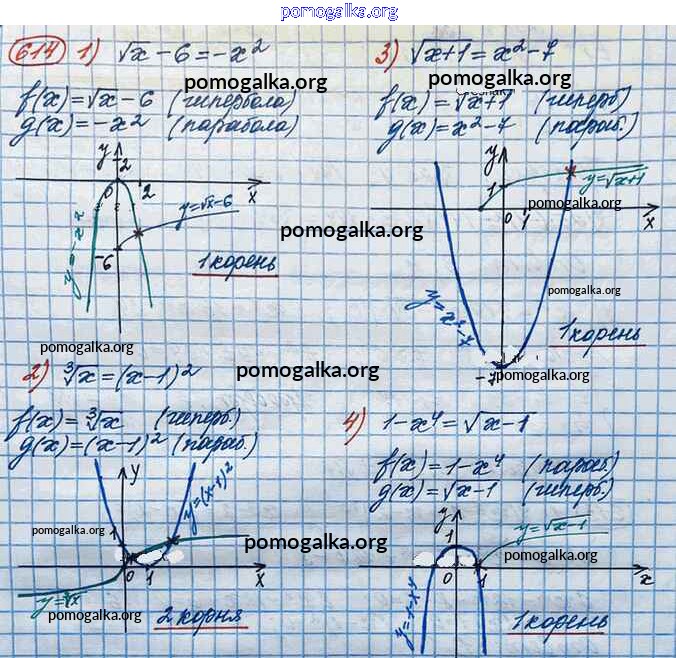 pomogalka.org
614 1) √x - 6 = -x²
pomogalka.org
f(x) = √x - 6 (гипербола)
g(x) = -x2 (парабола)
y
2
0
2
x
y = √x-6
-6
y = -x²
1 корень
pomogalka.org
3) √x+1 = x² - 7
pomogalka.org
f(x) = √x+1 (гиперб)
g(x) = x² - 7 (параб.)
y
1
y = √x+1
pomogalka.org
0 1
x
pomogalka.org
y = x² - 7
1 корень
-7
pomogalka.org
pomogalka.org
2) ∛x = (x-1)²
pomogalka.org
f(x) = ∛x (гиперб.)
g(x) = (x-1)² (параб.)
y
y = (x-1)²
pomogalka.org
1
pomogalka.org
0 1
x
y = ∛x
pomogalka.org
2 корня
4) 1 - x⁴ = √x-1
f(x) = 1 - x⁴ (параб.)
g(x) = √x-1 (гиперб.)
y
1
y = √x-1
pomogalka.org
0
1
x
y = 1-x⁴
1 корень
pomogalka.org